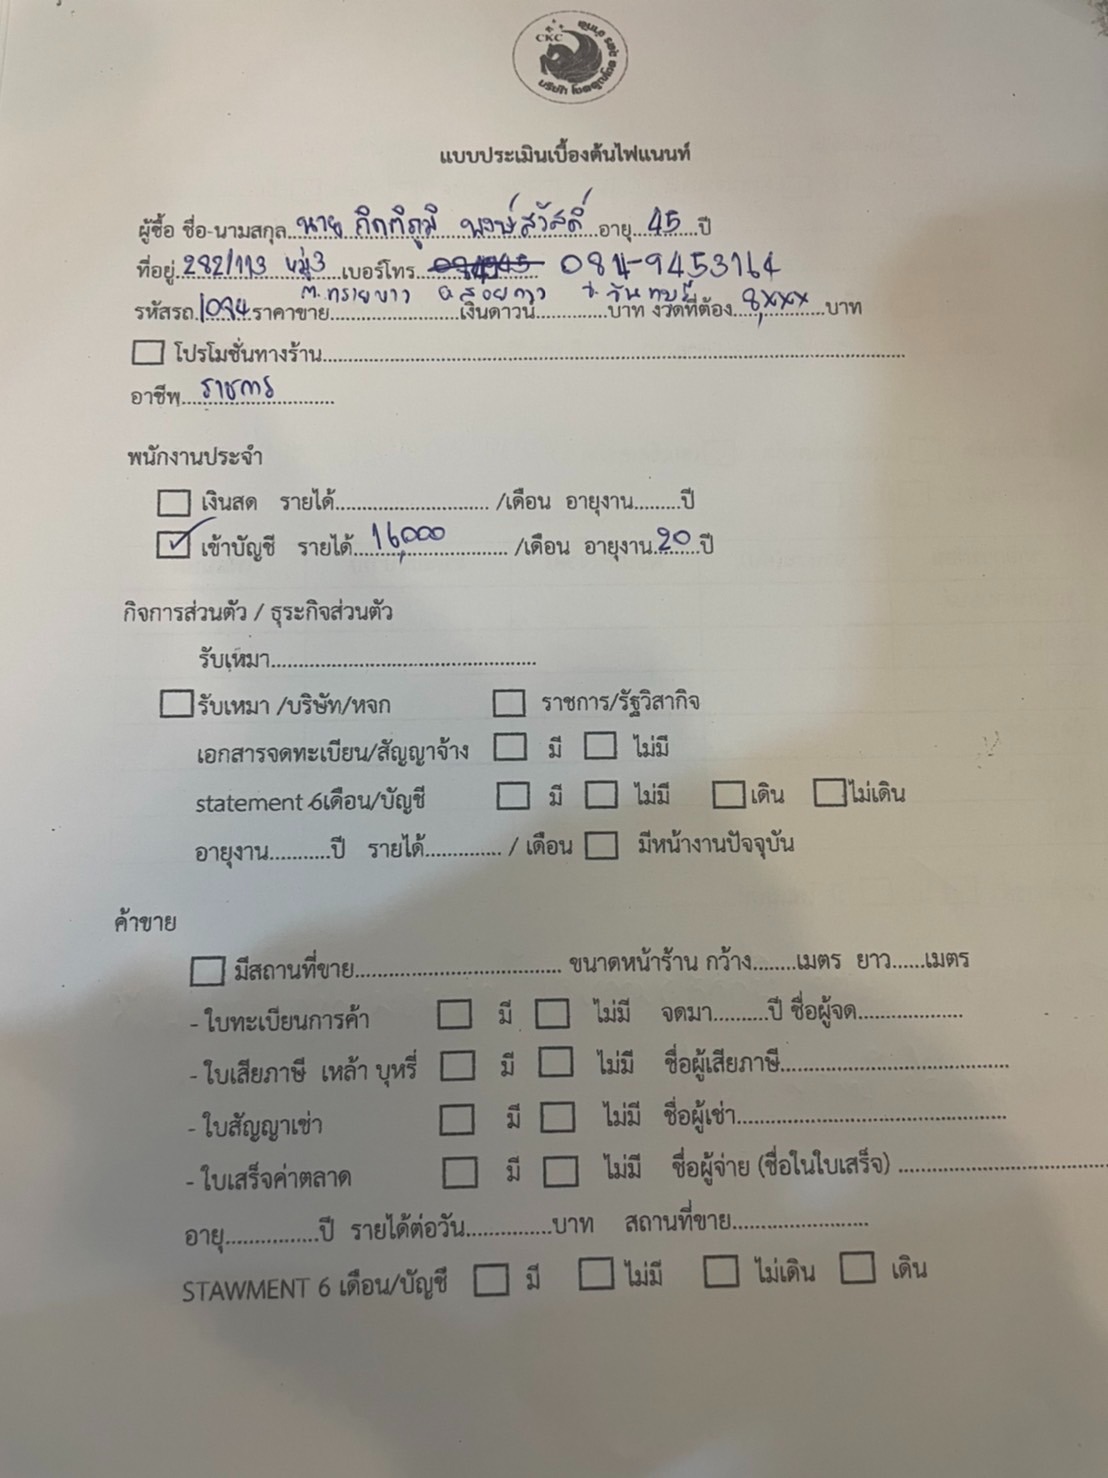 CKC
แบบประเมินเบื้องต้นไฟแนนท์
ผู้ซื้อ ชื่อ-นามสกุล..นาย กิตติภูมิ พงษ์สวัสดิ์..อายุ..45..ปี
ที่อยู่..282/113 หมู่3..เบอร์โทร.. 084-9453164
ต.ทรายขาว อ.สอยดาว จ.จันทบุรี
รหัสรถ.1094..ราคาขาย....................เงินดาวน์...........บาท งวดที่ต้อง..8,xxx..บาท
☐ โปรโมชั่นทางร้าน..........
อาชีพ..ราชการ..........
พนักงานประจำ
☐ เงินสด รายได้........................../เดือน อายุงาน.........ปี
☑ เข้าบัญชี รายได้..16,000........../เดือน อายุงาน..20..ปี
กิจการส่วนตัว / ธุระกิจส่วนตัว
รับเหมา..........
☐ รับเหมา /บริษัท/หจก ☐ ราชการ/รัฐวิสากิจ
เอกสารจดทะเบียน/สัญญาจ้าง ☐ มี ☐ ไม่มี
statement 6เดือน/บัญชี ☐ มี ☐ ไม่มี ☐ เดิน ☐ ไม่เดิน
อายุงาน...........ปี รายได้.............. / เดือน ☐ มีหน้างานปัจจุบัน
ค้าขาย
☐ มีสถานที่ขาย.................................... ขนาดหน้าร้าน กว้าง........เมตร ยาว......เมตร
- ใบทะเบียนการค้า ☐ มี ☐ ไม่มี จดมา..........ปี ชื่อผู้จด..................
- ใบเสียภาษี เหล้า บุหรี่ ☐ มี ☐ ไม่มี ชื่อผู้เสียภาษี..........
- ใบสัญญาเช่า ☐ มี ☐ ไม่มี ชื่อผู้เช่า..........
- ใบเสร็จค่าตลาด ☐ มี ☐ ไม่มี ชื่อผู้จ่าย (ชื่อในใบเสร็จ) ..........
อายุ................ปี รายได้ต่อวัน..............บาท สถานที่ขาย......................
STAWMENT 6 เดือน/บัญชี ☐ มี ☐ ไม่มี ☐ ไม่เดิน ☐ เดิน